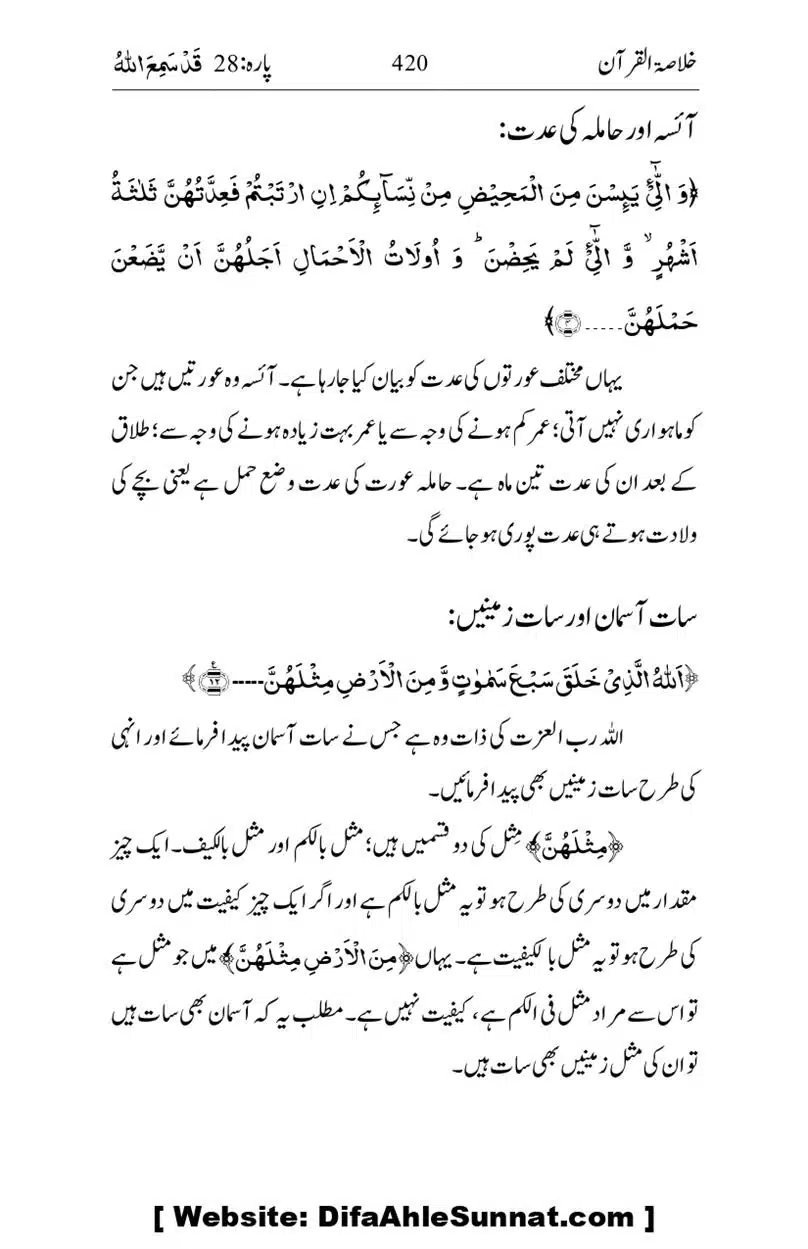 خلاصۃ القرآن 420 پارہ:28 قَدْ سَمِعَ اللّٰہُ
آئسہ اور حاملہ کی عدت:
﴿وَ الّٰٓـِٔیْ یَىِٕسْنَ مِنَ الْمَحِیْضِ مِنْ نِّسَآىِٕكُمْ اِنِ ارْتَبْتُمْ فَعِدَّتُهُنَّ ثَلٰثَةُ
اَشْهُرٍ ۙ وَّ الّٰٓـِٔیْ لَمْ یَحِضْنَ ؕ وَ اُولَاتُ الْاَحْمَالِ اَجَلُهُنَّ اَنْ یَّضَعْنَ
حَمْلَهُنَّ-----﴾
یہاں مختلف عورتوں کی عدت کو بیان کیا جا رہا ہے۔ آئسہ وہ عورتیں ہیں جن
کو ماہواری نہیں آتی؛ عمر کم ہونے کی وجہ سے یا عمر بہت زیادہ ہونے کی وجہ سے؛ طلاق
کے بعد ان کی عدت تین ماہ ہے۔ حاملہ عورت کی عدت وضع حمل ہے یعنی بچے کی
ولادت ہوتے ہی عدت پوری ہو جائے گی۔
سات آسمان اور سات زمینیں:
﴿اَللّٰهُ الَّذِیْ خَلَقَ سَبْعَ سَمٰوٰتٍ وَّ مِنَ الْاَرْضِ مِثْلَهُنَّ-----۱۲﴾
اللہ رب العزت کی ذات وہ ہے جس نے سات آسمان پیدا فرمائے اور انہی
کی طرح سات زمینیں بھی پیدا فرمائیں۔
﴿مِثْلَهُنَّ﴾ مِثل کی دو قسمیں ہیں؛ مثل بالکم اور مثل بالکیف۔ ایک چیز
مقدار میں دوسری کی طرح ہو تو یہ مثل بالکم ہے اور اگر ایک چیز کیفیت میں دوسری
کی طرح ہو تو یہ مثل بالکیفیت ہے۔ یہاں ﴿مِنَ الْاَرْضِ مِثْلَهُنَّ﴾ میں جو مثل ہے
تو اس سے مراد مثل فی الکم ہے، کیفیت نہیں ہے۔ مطلب یہ کہ آسمان بھی سات ہیں
تو ان کی مثل زمینیں بھی سات ہیں۔
[ Website: DifaAhleSunnat.com ]